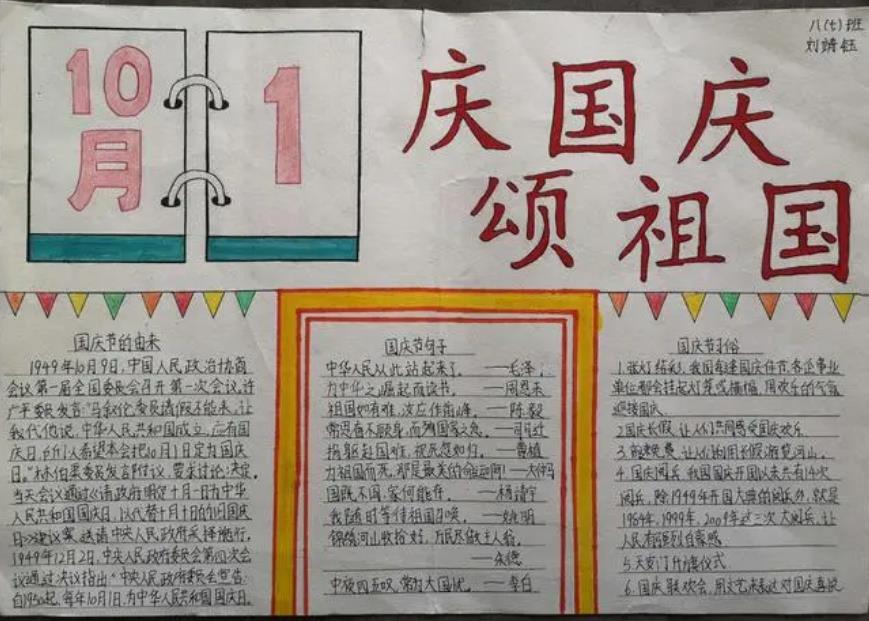 八(七)班
刘靖钰
10月
1
庆国庆
颂祖国
国庆节的由来
1949年10月9日,中国人民政治协商
会议第一届全国委员会召开第一次会议,许
广平委员发言:"马叙伦委员请假不能来,让
我代他说,中华人民共和国成立,应有国
庆日,所以希望本会把10月1日定为国庆
日。"林伯渠委员发言附议,要求讨论决定。
当天会议通过《请政府明定十月一日为中华
人民共和国国庆日,以代替十月十日的旧国庆
日》建议案,送请中央人民政府采择施行。
1949年12月2日,中央人民政府委员会第四次会
议通过决议指出"中央人民政府委员会宣告:
自1950起,每年10月1日,为中华人民共和国国庆日。
国庆节句子
中华人民从此站起来了。——毛泽
为中华之崛起而读书。——周恩来
祖国如有难,汝应作前锋。——陈毅
常思奋不顾身,而殉国家之急。——司马迁
捐躯赴国难,视死忽如归。——曹植
为祖国而死,那是最美的命运啊!——大仲马
国既不国,家何能存。——杨靖宇
我随时等待祖国召唤。——姚明
锦绣河山收拾好,万民尽做主人翁。
——朱德
中夜四五叹,常为大国忧。——李白
国庆节习俗
1.张灯结彩,我国每逢国庆佳节,各企事业
单位都会挂起灯笼或横幅,用欢乐的气氛
迎接国庆.
2.国庆长假,让人们共同感受国庆欢乐.
3.高速免费,让人们利用长假游览河山.
4.国庆阅兵,我国国庆开国以来共有14次
阅兵,除1949年开国大典的阅兵外,就是
1984年,1999年,2009年这三次大阅兵,让
人民相到自豪感
5.天安门升旗仪式.
6.国庆联欢会,用文艺来表达对国庆喜悦